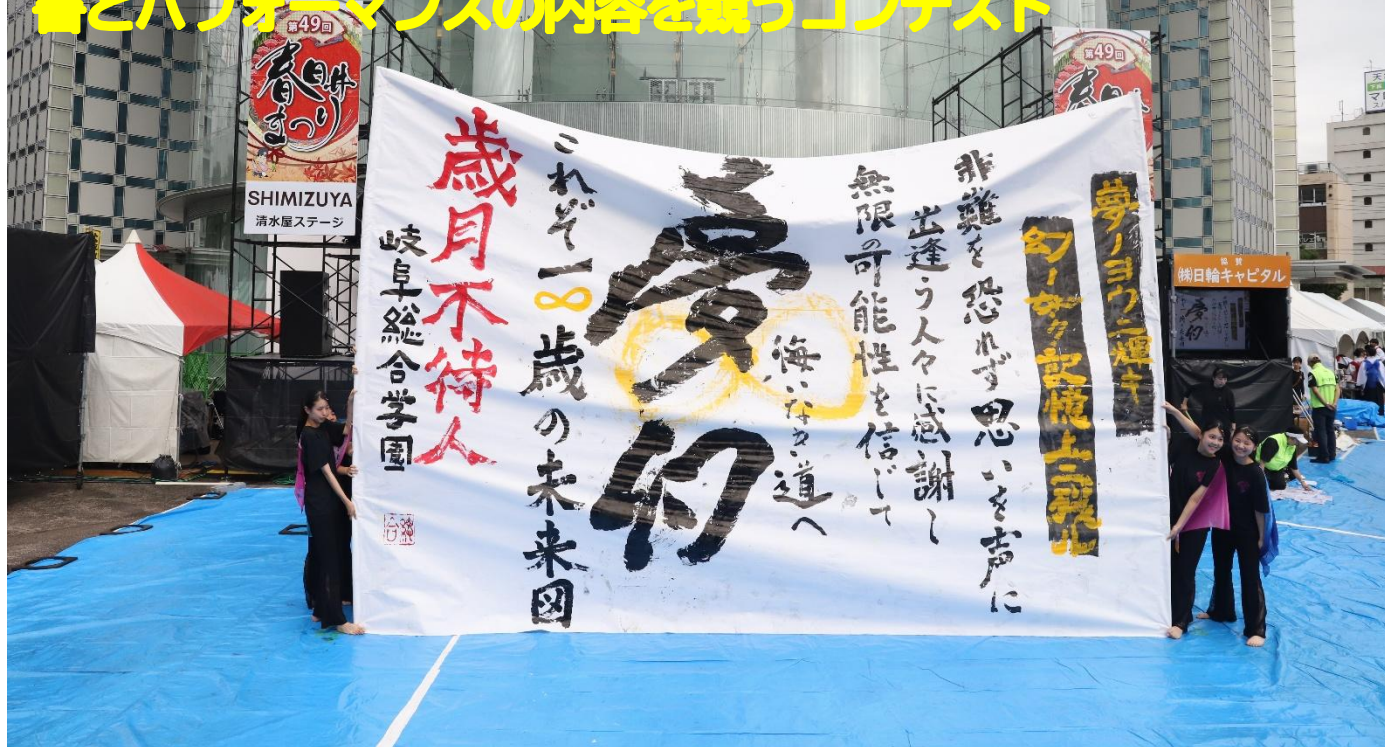 書とパフォーマンスの内容を競うコンテスト
第49回
春日井まつり
SHIMIZUYA
清水屋ステージ
第49回
協賛
㈱日輪キャピタル
夢ノヨウニ輝キ
幻ノ如ク記憶上ニ残ル
非難を恐れず思いを声に
出逢う人々に感謝し
無限の可能性を信じて
悔いなき道へ
夢幻
これぞ一∞歳の未来図
歳月不待人
岐阜総合学園
総合